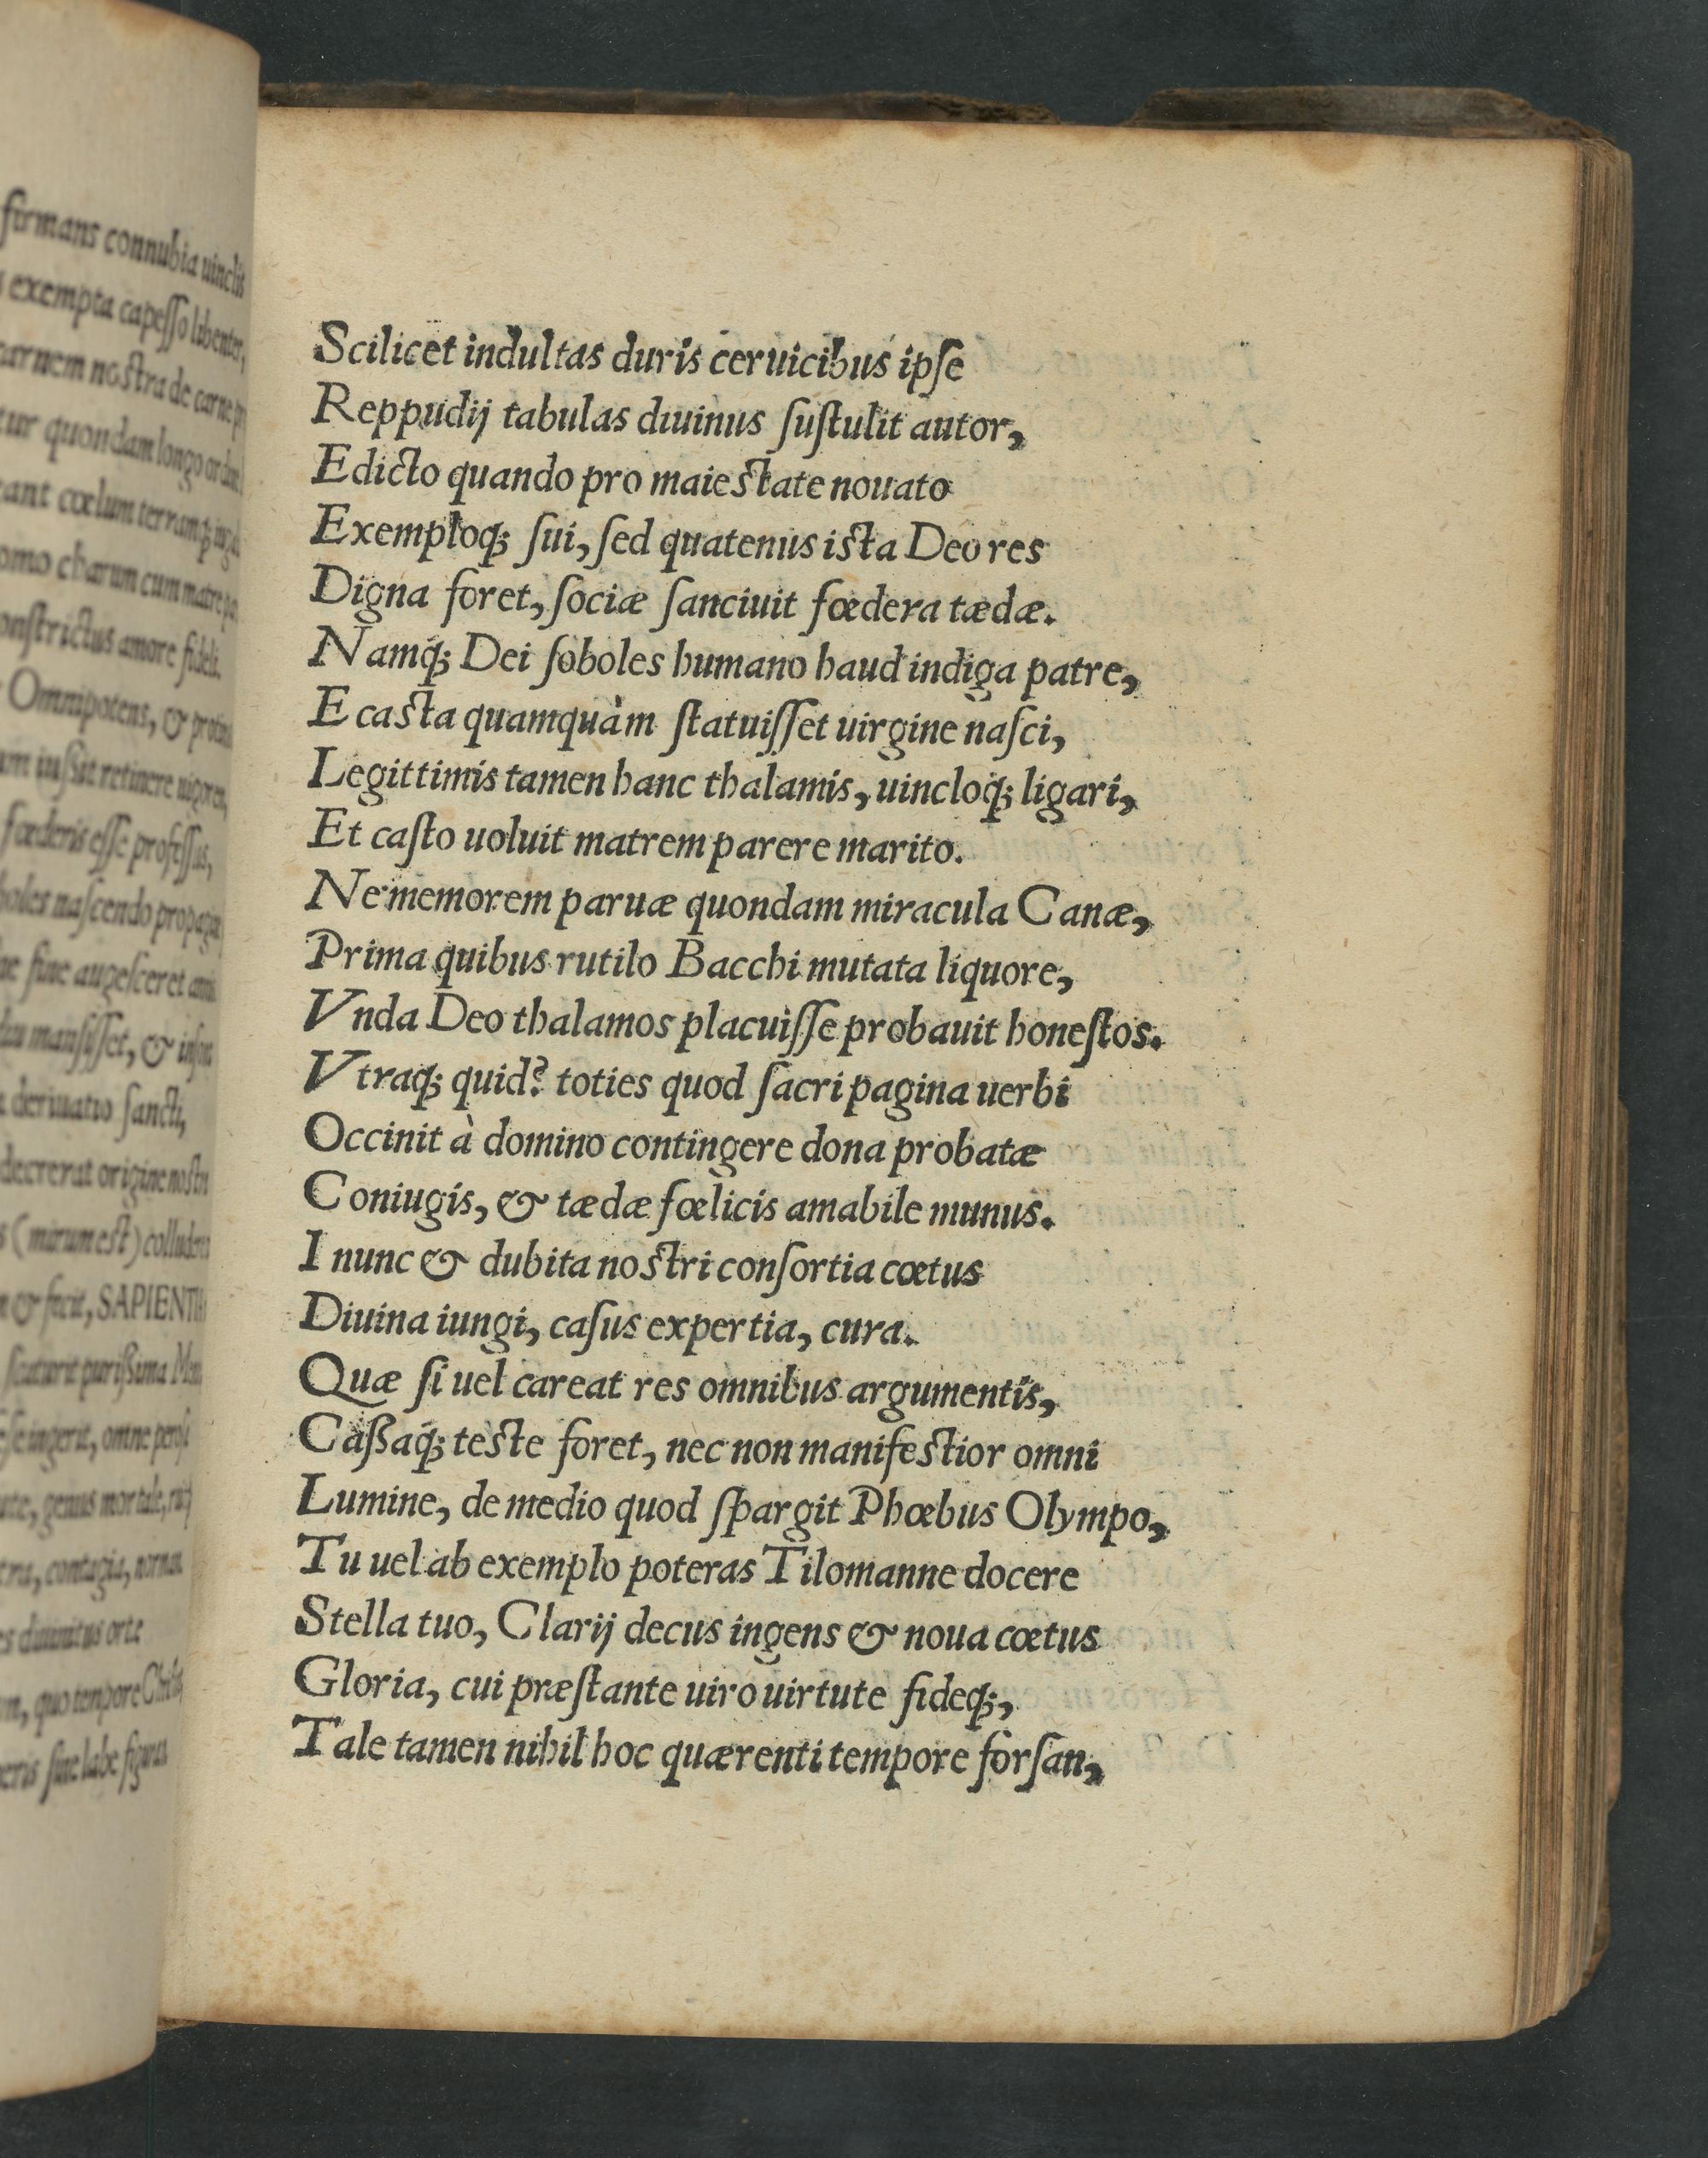 firmans connubia uinclis
exempta capeſſo libenter,
carnem noſtra de carne
quondam longo ordine
cœlum terramq́;
charum cum matre
conſtrictus amore fideli.
Omnipotens, &
iuſsit retinere uigorem,
fœderis eſſe profeſſus,
naſcendo
ſine augeſceret
manſiſſet, &
deriuatio ſancti,
decreerat origine noſtri
(mirum est)
& fecit, SAPIENTIA
puriſsima
ingerit, omne
genus mortale,
contagia,
diuinitus orte
quo tempore
ſine labe figura
Scilicet indultas duris ceruicibus ipſe
Reppudij tabulas diuinus ſuſtulit autor,
Edicto quando pro maieſtate nouato
Exemploq́; ſui, ſed quatenus iſta Deo res
Digna foret, ſociæ ſanciuit fœdera tædæ.
Namq́; Dei ſoboles humano haud indiga patre,
E caſta quamquàm ſtatuiſſet uirgine naſci,
Legittimis tamen hanc thalamis, uincloq́; ligari,
Et caſto uoluit matrem parere marito.
Ne memorem paruæ quondam miracula Canæ,
Prima quibus rutilo Bacchi mutata liquore,
Vnda Deo thalamos placuiſſe probauit honeſtos.
Vtraq́; quid? toties quod ſacri pagina uerbi
Occinit à domino contingere dona probatæ
Coniugis, & tædæ fœlicis amabile munus.
I nunc & dubita noſtri conſortia cœtus
Diuina iungi, caſus expertia, cura.
Quæ ſi uel careat res omnibus argumentis,
Caßaq́; teſte foret, nec non manifeſtior omni
Lumine, de medio quod ſpargit Phœbus Olympo,
Tu uel ab exemplo poteras Tilomanne docere
Stella tuo, Clarij decus ingens & noua cœtus
Gloria, cui præſtante uiro uirtute fideq́;,
Tale tamen nihil hoc quærenti tempore forſan,